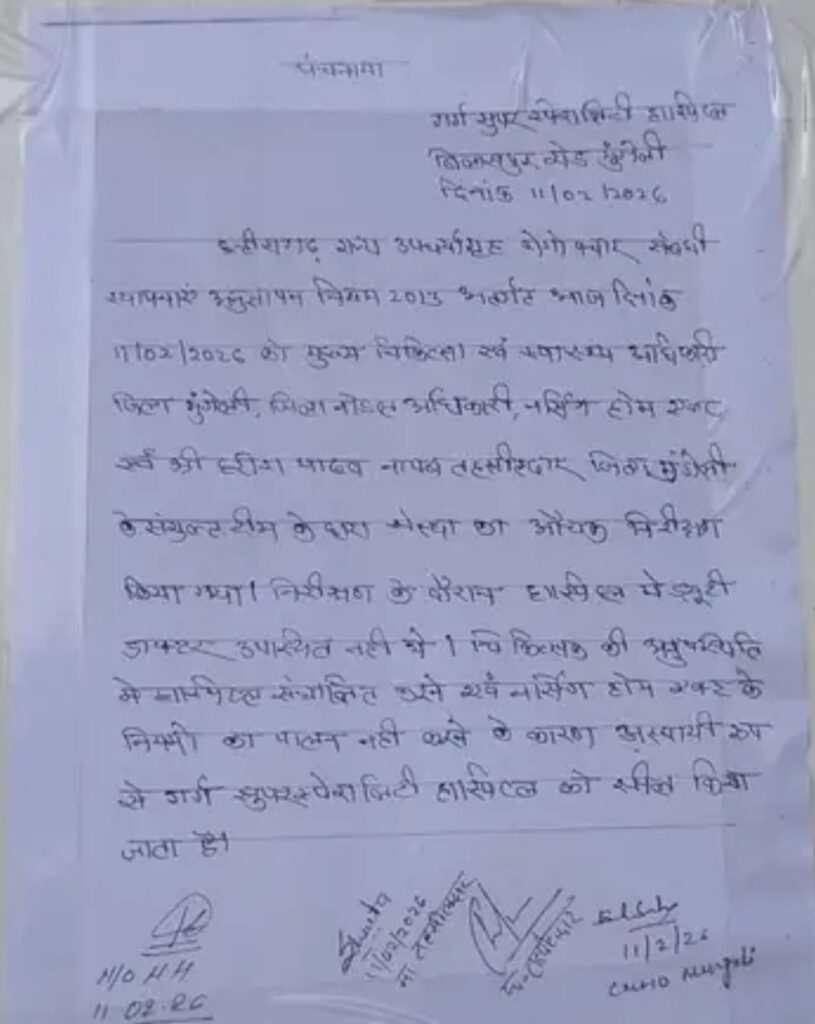 पंचनामा
गर्ग सुपर स्पेशलिटी हास्पिटल
बिलासपुर रोड मुंगेली
दिनांक 11/02/2026
छत्तीसगढ़ राज्य उपचर्यागृह रोगोपचार संबंधी
स्थापनाएं अनुज्ञापन नियम 2013 अंतर्गत आज दिनांक
11/02/2026 को मुख्य चिकित्सा एवं स्वास्थ्य अधिकारी
जिला मुंगेली, जिला नोडल अधिकारी, नर्सिंग होम एक्ट,
एवं श्री हरीश यादव नायब तहसीलदार जिला मुंगेली
के संयुक्त टीम के द्वारा संस्था का औचक निरीक्षण
किया गया। निरीक्षण के दौरान हास्पिटल मे ड्यूटी
डाक्टर उपस्थित नही थे। चिकित्सक की अनुपस्थिति
मे हास्पिटल संचालित करने एवं नर्सिंग होम एक्ट के
नियमो का पालन नही करने के कारण अस्थायी रूप
से गर्ग सुपरस्पेशलिटी हास्पिटल को सील किया
जाता है।
N/O NH
11.02.26
11/02/2026
ना. तहसीलदार
11/2/26
CMHO Mungeli